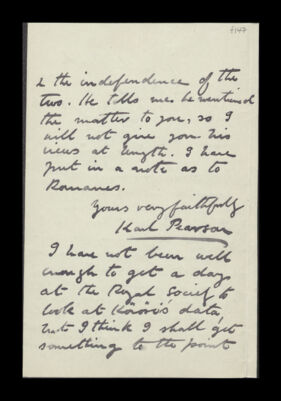 f147
& the independence of the
two. He tells me he mentioned
the matter to you, so I
will not give you his
views at length. I have
put in a note as to
Romanes.
Yours very faithfully
Karl Pearson
I have not been well
enough to get a day
at the Royal Society to
look at Körösi's data,
but I think I shall get
something to the point